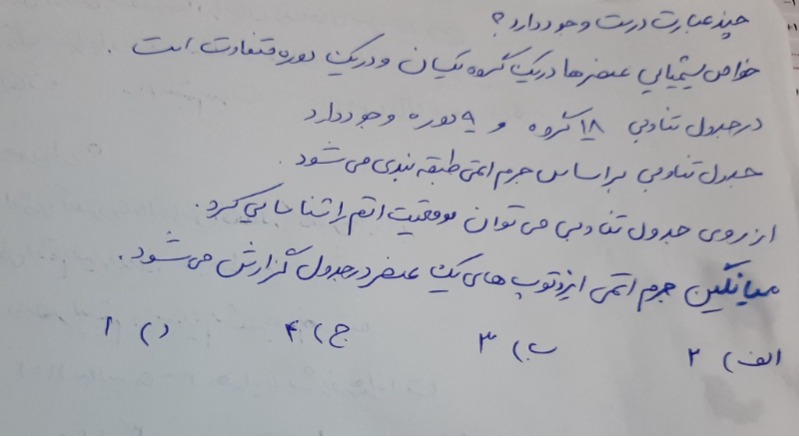 چند عبارت درست وجود دارد؟
خواص شیمیایی عنصرها در یک گروه یکسان و در یک دوره متفاوت است.
در جدول تناوبی ۱۸ گروه و ۹ دوره وجود دارد
جدول تناوبی براساس جرم اتمی طبقه بندی می شود.
از روی جدول تناوبی می توان موقعیت اتم را شناسایی کرد.
میانگین جرم اتمی ایزوتوپ های یک عنصر در جدول گزارش می شود.
الف) ۲ ب) ۳ ج) ۴ د) ۱